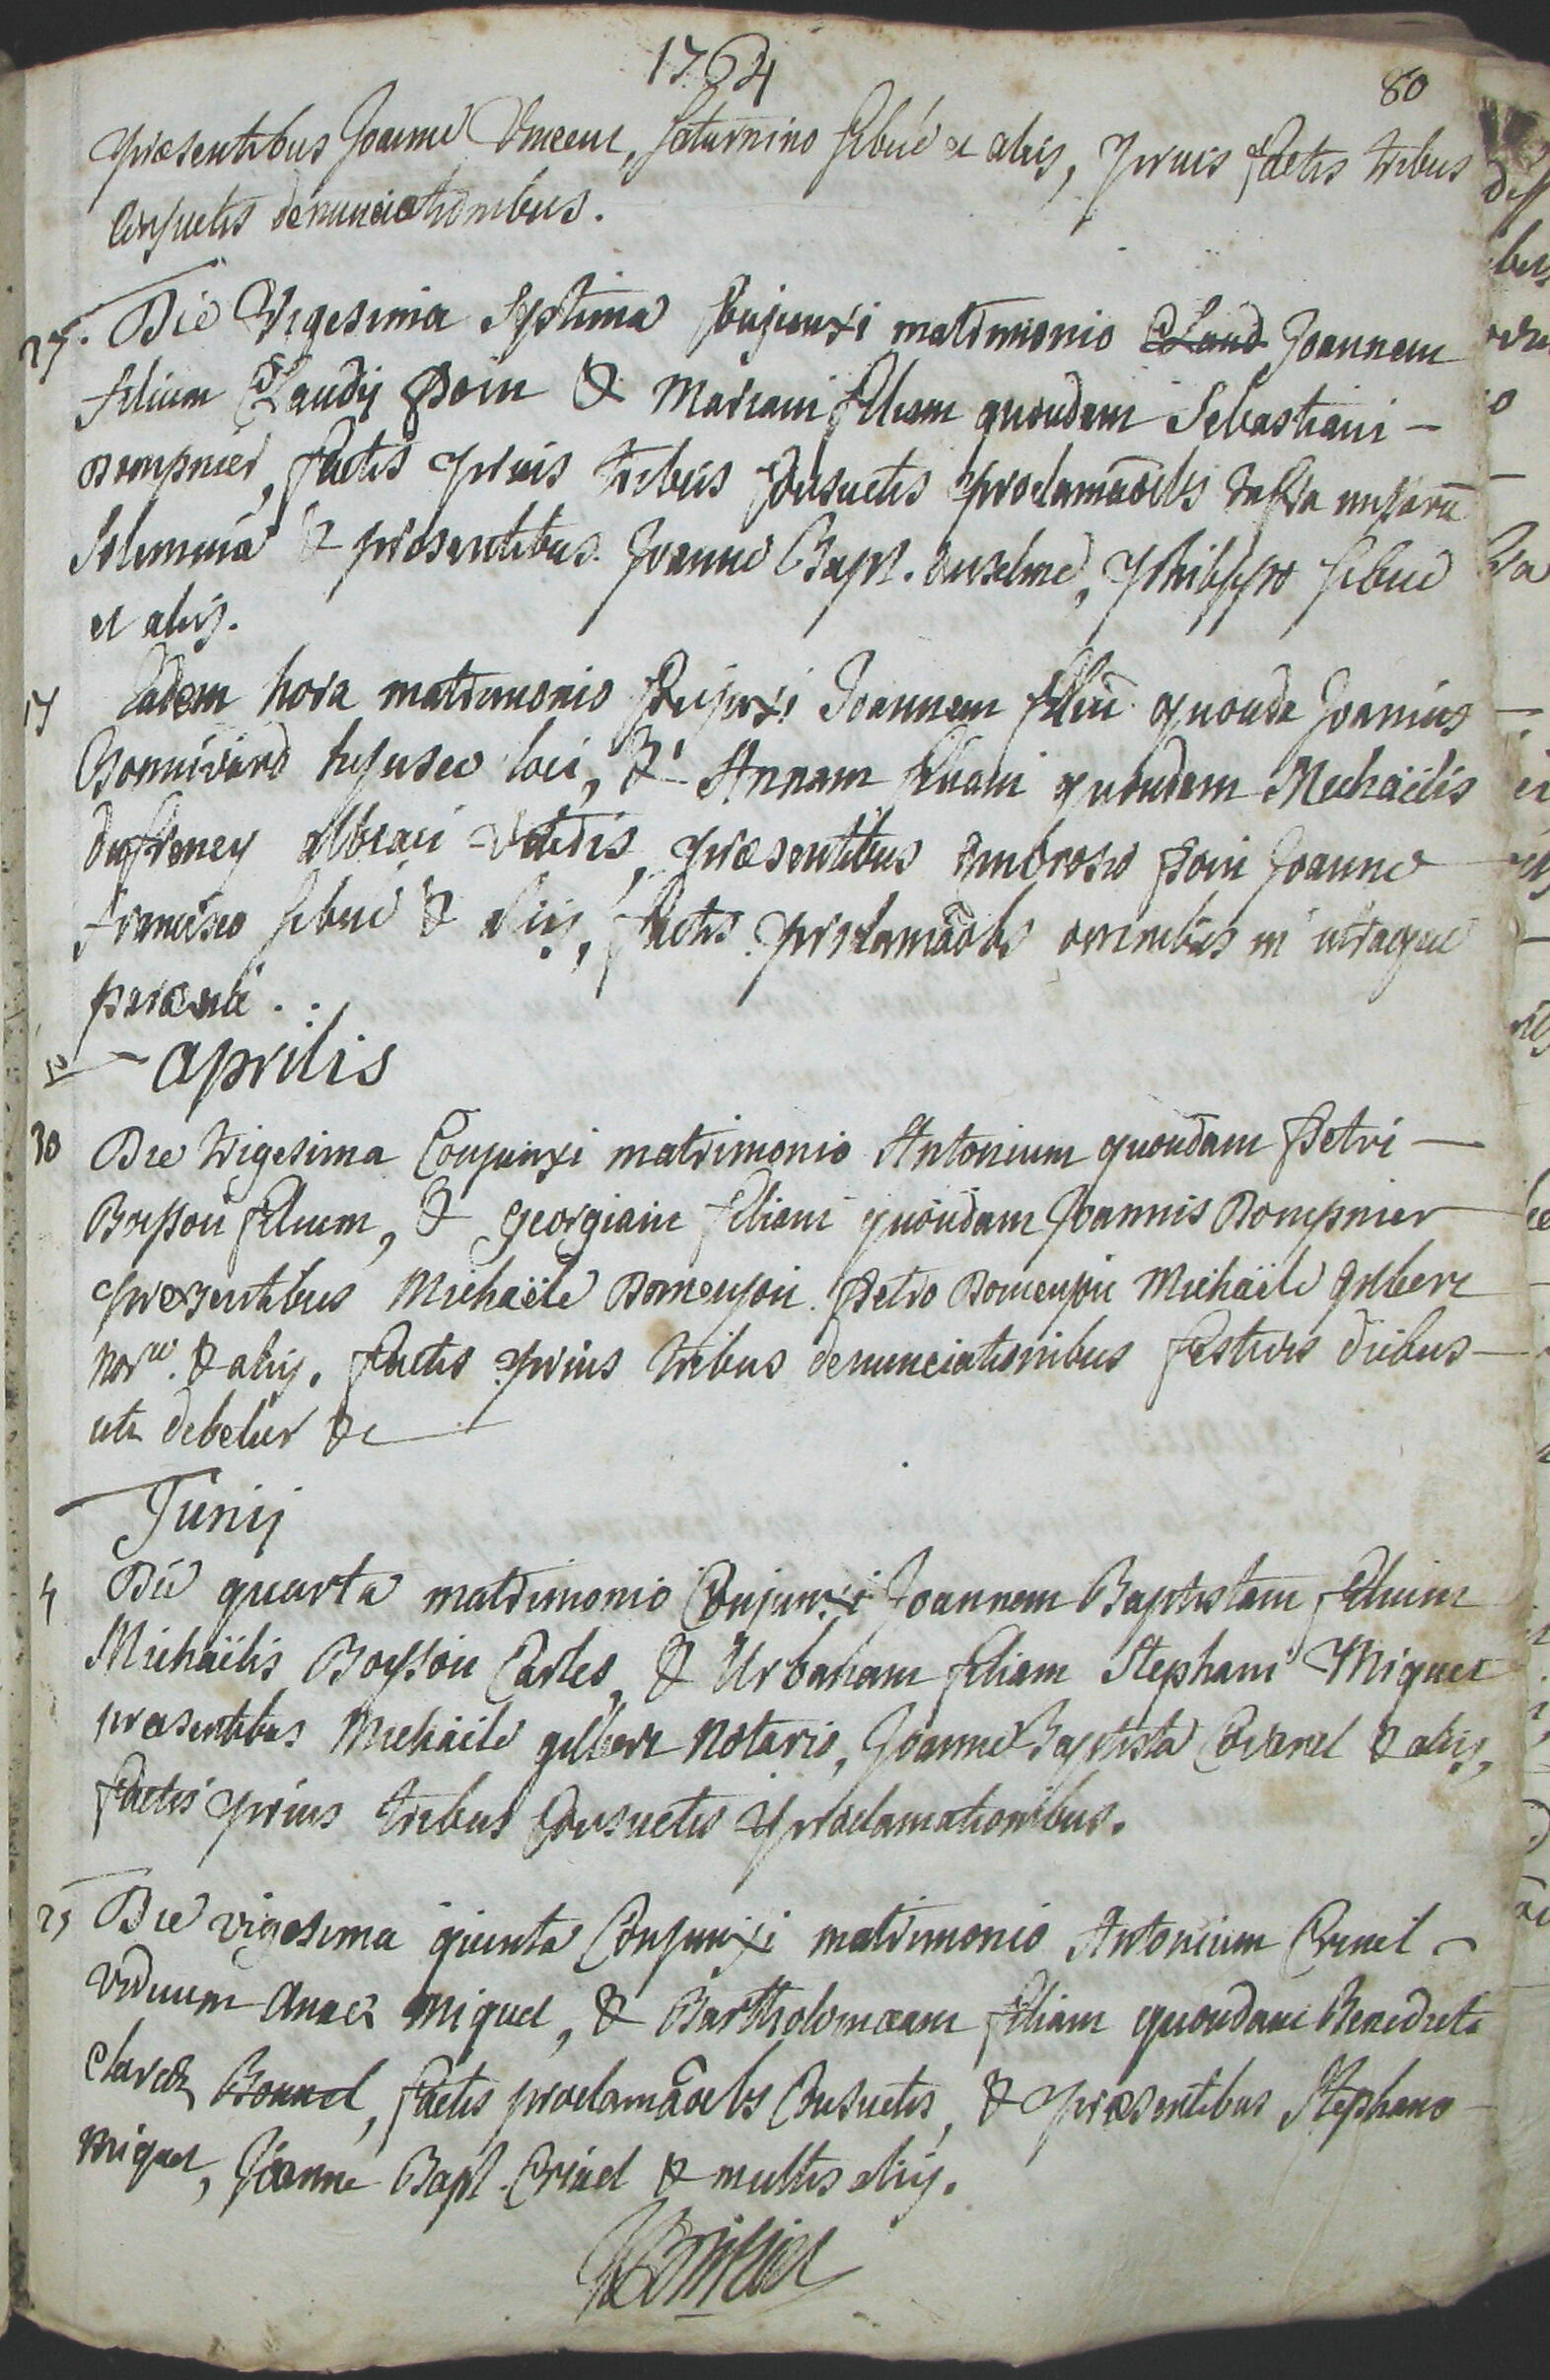 1764
80
præsentibus Joanne Vincent, Saturnino sibué et alijs, prius factis tribus
consuetis denunciationibus.
27. Die Vigesima Septima Conjunxi matrimonio Claud Joannem
filium Claudij Poin & Mariam filiam quondam Sebastiani -
Dompnier, factis prius tribus Consuetis proclamaõbs missarũ
Solemnia & præsentibus Joanne Bapt. anselme, Philippo sibué
et alijs.
17 Eadem hora matrimonio Conjunxi Joannem filiũ quonda Joannis
Bonnivard hujusce loci, & Annam filiam quondam Michaëlis
dufreney Albiaci Veteris, præsentibus Ambrosio poin Joanne
francisco sibué & alijs, factis proclamaõbs omnibus in utraque
paroecia.
- aprilis
30 Die trigesima Conjunxi matrimonio Antonium quondam Petri -
Boisson filium, & georgiam filiam quondam Joannis Dompnier
præsentibus Michaële Domenjon Petro Domenjon Michaële gilbert
nor.io & alijs. factis prius tribus denunciationibus festivis diebus -
uti debetur &c
Junij
4 Die quarta matrimonio Conjunxi Joannem Baptistam filium
Michaëlis Boysson Carles, & Urbanam filiam Stephani Miquet
præsentibus Michaële gilbert Notario, Joanne Baptista Covarel & alijs,
factis prius tribus Consuetis proclamationibus.
25 Die vigesima quinta Conjunxi matrimonio Antonium Crinel -
viduum Annæ miquel, & Bartholomæam filiam quondam Benedicti
claraz Bonnel, factis proclamaõbs Consuetis, & præsentibus Stephano -
miquel, Joanne Bapt. Crinel & multis alijs.